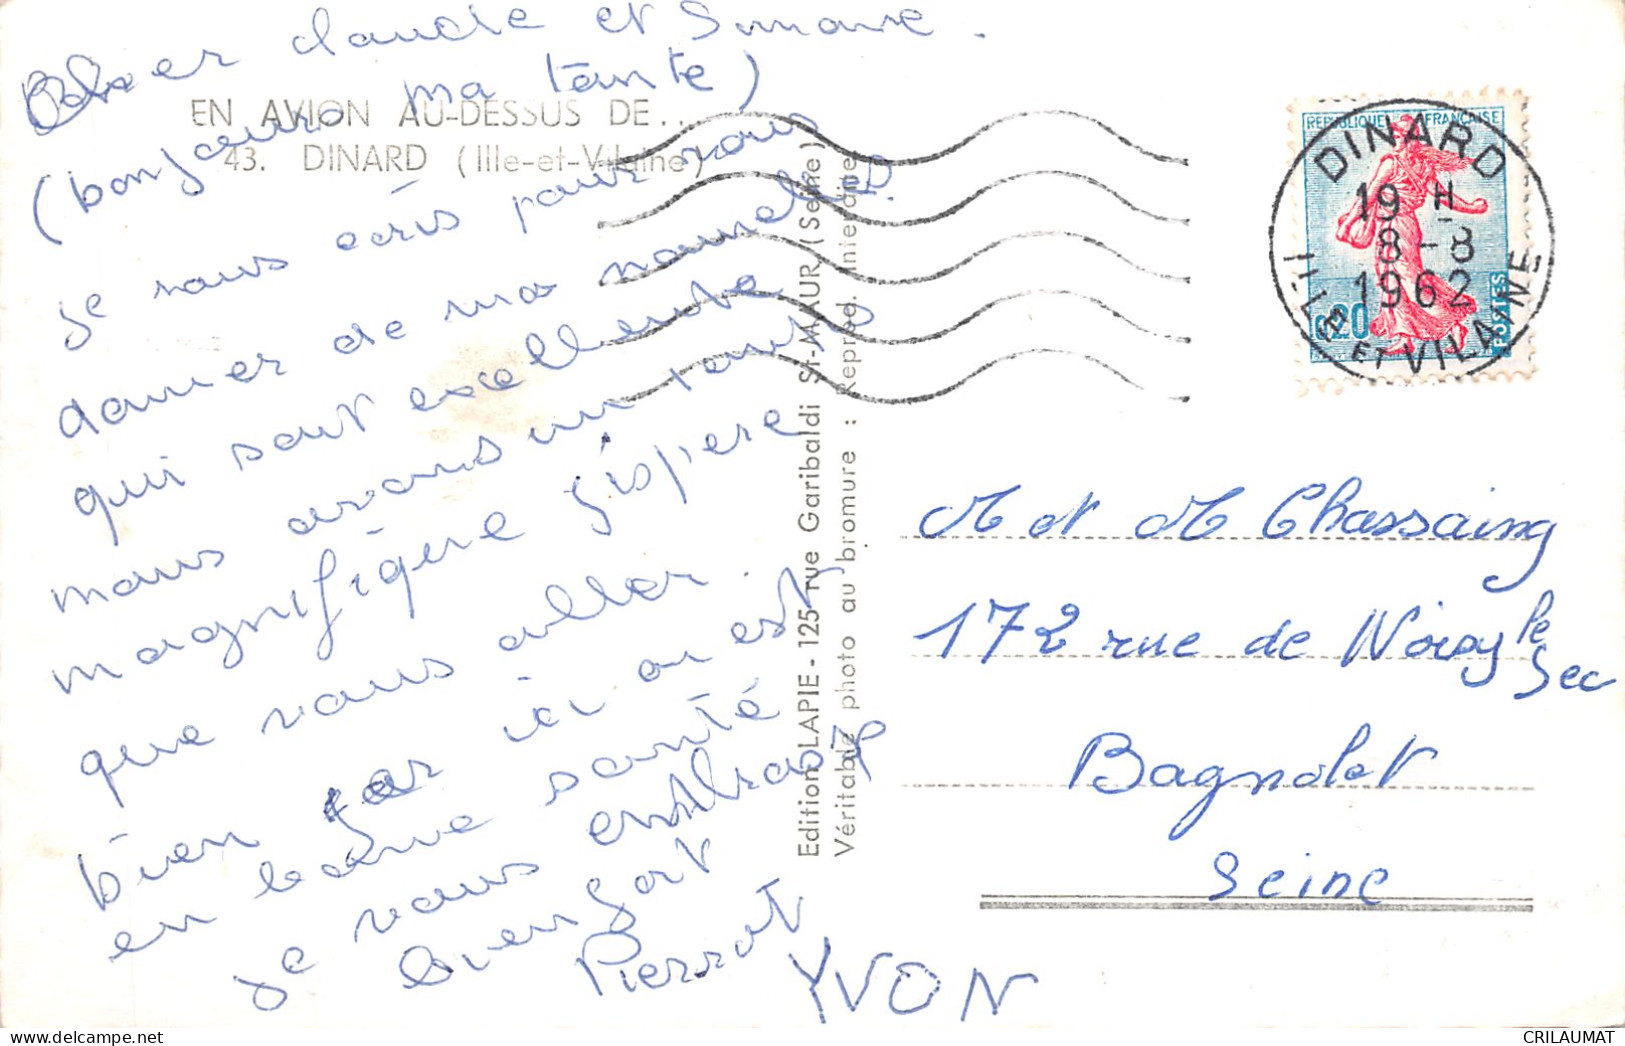 cher claude et Simone.
(bonjour ma tante)
EN AVION AU-DESSUS DE...
43. DINARD (Ille-et-Vilaine)
je vous écris pour vous
donner de mes nouvelles.
qui sont excellente
nous avons un temps
magnifique j'éspere
que vous aller
bien par ici on est
en bonne santé
je vous embrasse
bien fort
Pierrot
YVON
Edition LAPIE - 125, rue Garibaldi St-MAUR (Seine)
Véritable photo au bromure : Reprod. interdite
REPUBLIQUE FRANÇAISE
0.20
POSTES
DINARD
19 H
8 - 8
1962
ILLE ET VILAINE
M et M Chassaing
172 rue de Noisy le
Sec
Bagnolet
Seine
CRILAUMAT